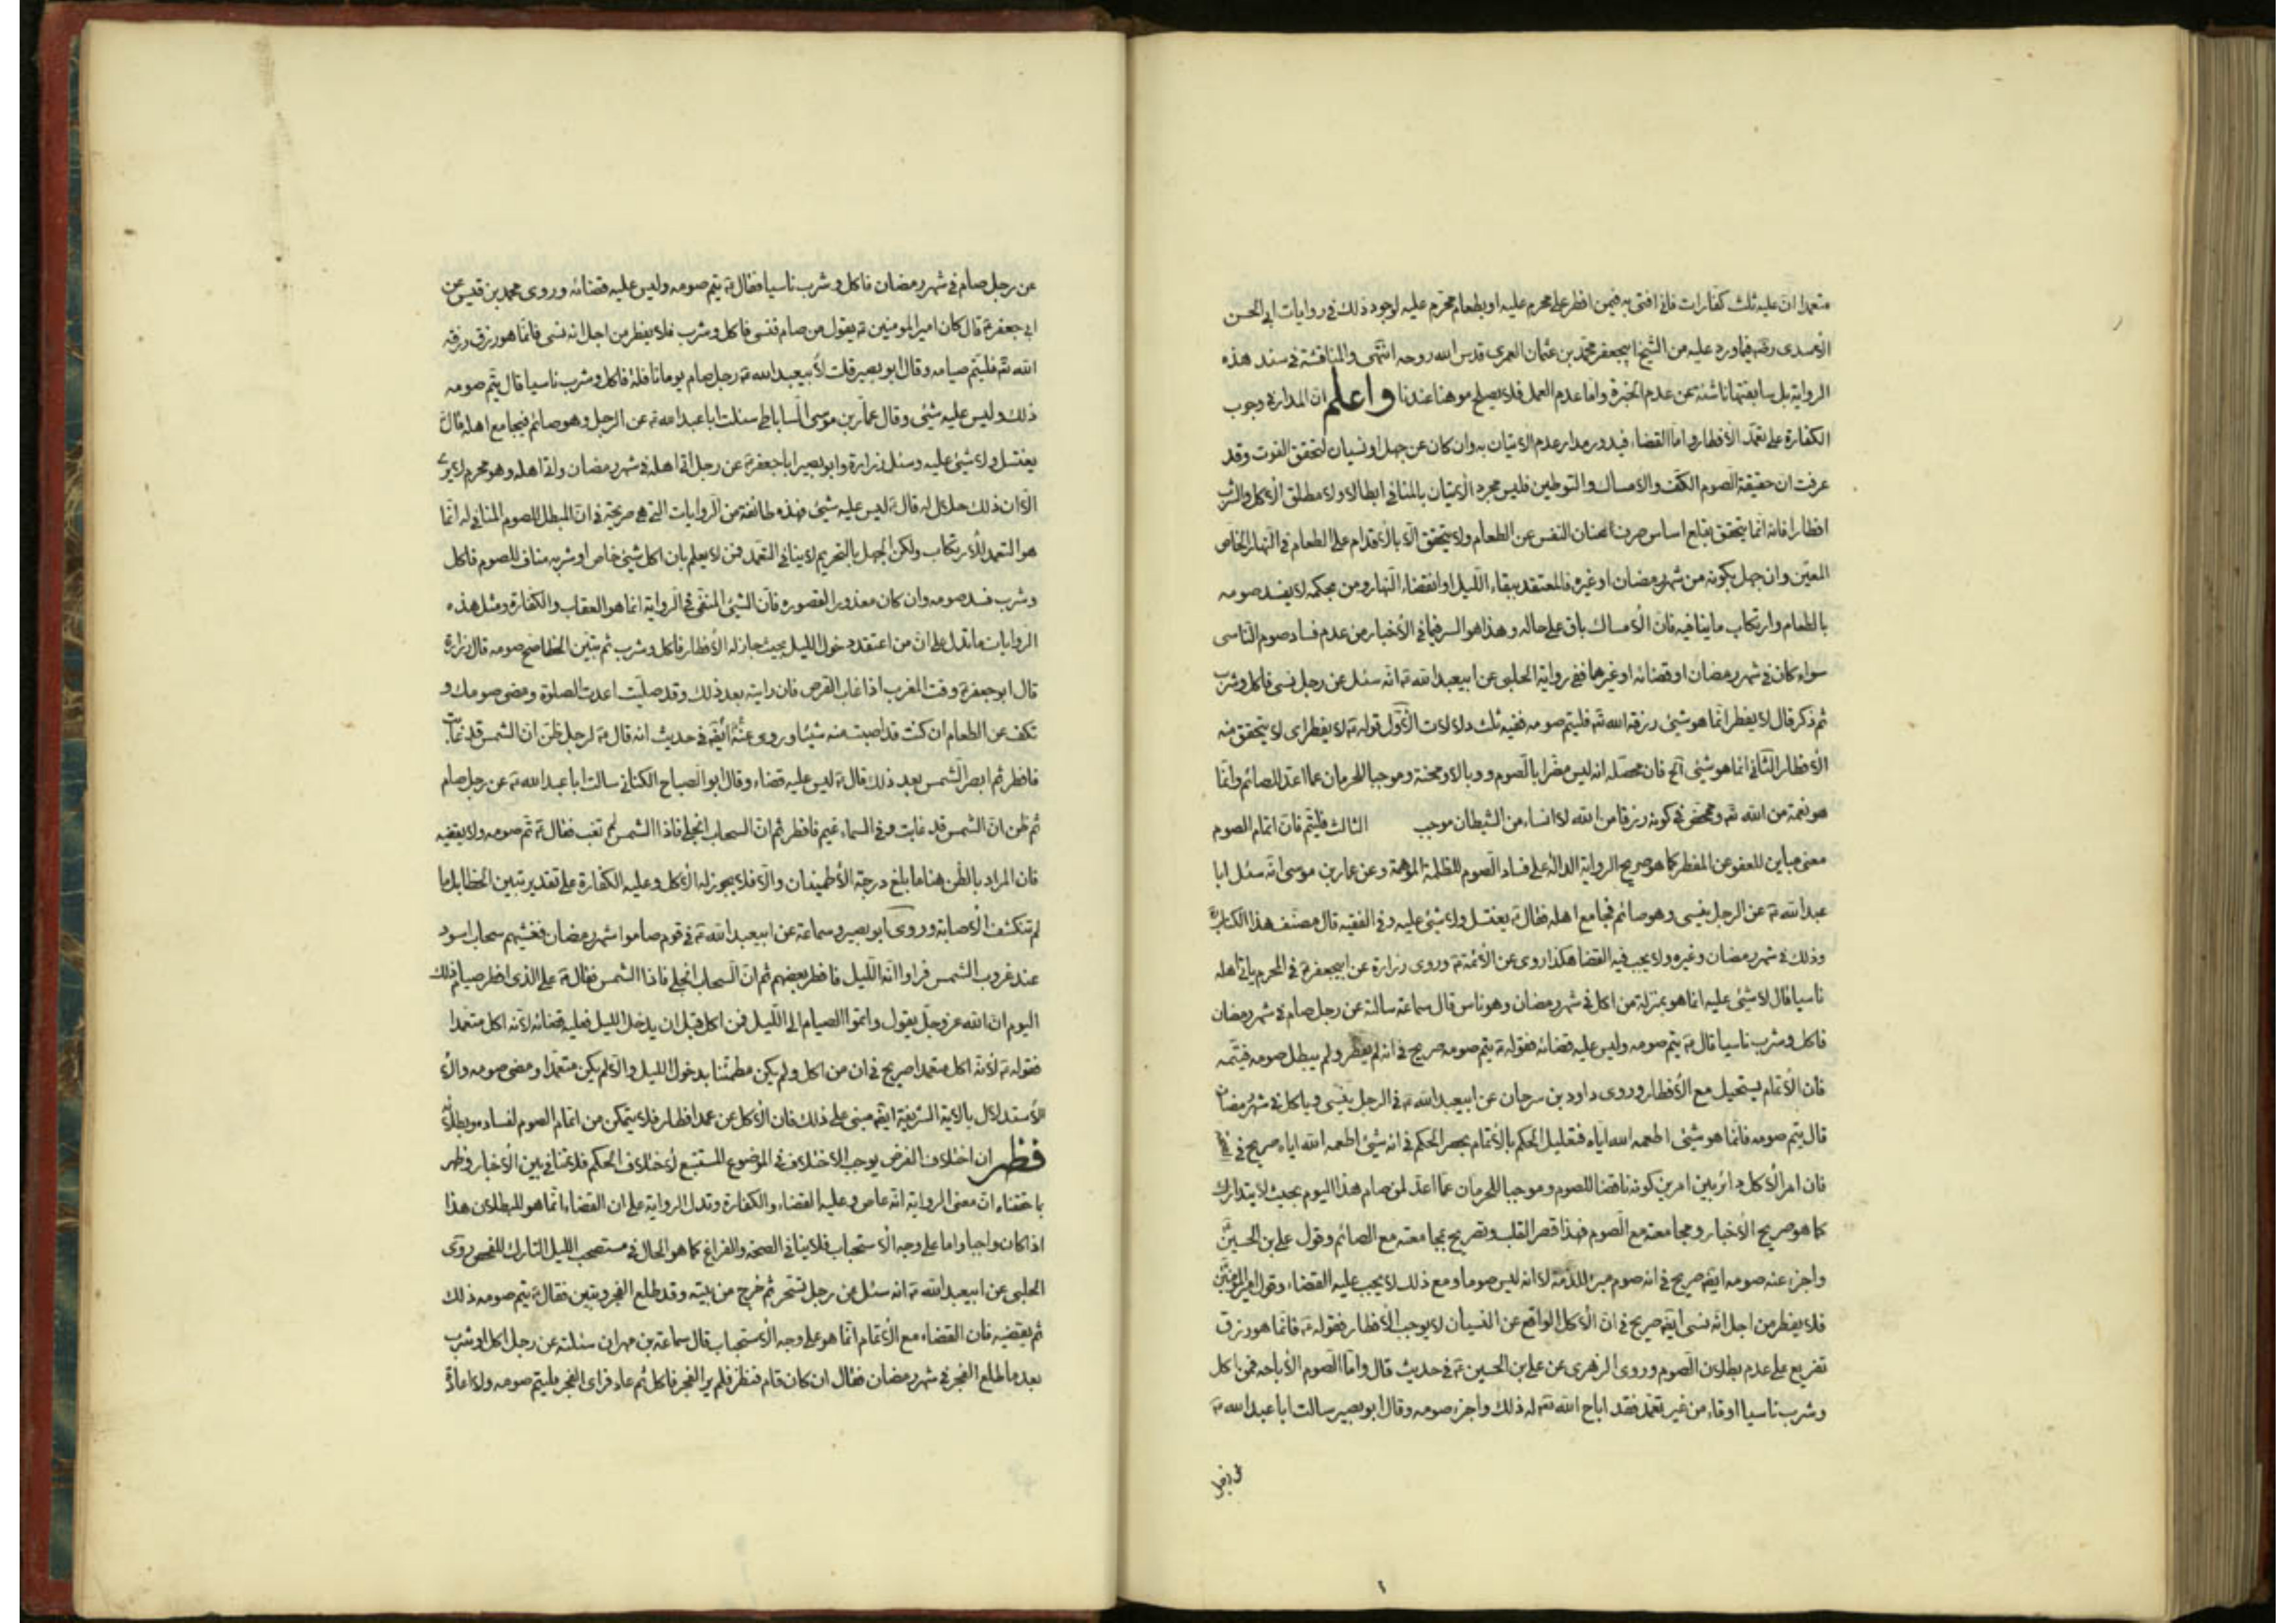 متعمدا ان عليه ثلث كفارات فانى افتى به فيمن افطر على محرم عليه او بطعام محرم عليه لوجود ذلك فى روايات ابى الحسن
الأسدى رضه فيما ورد عليه من الشيخ ابيجعفر محمد بن عثمان العمرى قدس الله روحه انتهى والمناقشة فى سند هذه
الرواية بل سابقتها ناشئة عن عدم الخبرة واما عدم العمل فلا يصلح موهنا عندنا واعلم ان المدار فى وجوب
الكفارة على تعمد الأفطار واما القضاء فيدور مدار عدم الاتيان به وان كان عن جهل او نسيان لتحقق الفوت وقد
عرفت ان حقيقة الصوم الكف والامساك والتوطين فليس مجرد الاتيان بالمنافى ابطالا ولا مطلق الأكل والشرب
افطارا فانه انما يتحقق بقلع اساس صرف عنان النفس عن الطعام ولا يتحقق الا بالاقدام على الطعام فى النهار الخاص
المعين وان جهل بكونه من شهر رمضان او غيره فالمعتقد ببقاء الليل او انقضاء النهار ومن بحكمه لا يفسد صومه
بالطعام وارتكاب ما ينافيه فان الأمساك باق على حاله وهذا هو السر فيما فى الأخبار من عدم فساد صوم الناسى
سواء كان فى شهر رمضان او قضائه او غيرها ففى رواية الحلبى عن ابيعبد الله ع انه سئل عن رجل نسى فاكل وشرب
ثم ذكر قال لا يفطر انما هو شئ رزقه الله تع فليتم صومه ففيه ثلث دلالات الأول قوله ع لا يفطر اى لا يتحقق منه
الأفطار الثانى انما هو شئ الخ فان محصله انه ليس مضرا بالصوم ووبالا ومحنة وموجبا للحرمان عما اعد للصائم وانما
هو نعمة من الله تع ومحض فى كونه رزقا من الله لا انساء من الشيطان موجب الثالث فليتم فان اتمام الصوم
معنى مباين للعفو عن المفطر كما هو صريح الرواية الدالة على فساد الصوم للظلمة الموهمة وعن عمار بن موسى انه سئل ابا
عبد الله ع عن الرجل ينسى وهو صائم فجامع اهله فقال ع يغتسل ولا شئ عليه وفى الفقيه قال مصنف هذا الكتاب
وذلك فى شهر رمضان وغيره ولا يجب فيه القضا هكذا روى عن الأئمة ع وروى زرارة عن ابيجعفر ع فى المحرم ياتى اهله
ناسيا قال لا شئ عليه انما هو بمنزلة من اكل فى شهر رمضان وهو ناس قال سماعة سالته عن رجل صام فى شهر رمضان
فاكل وشرب ناسيا قال ع يتم صومه وليس عليه قضائه فقوله ع يتم صومه صريح فى انه لم يفطر ولم يبطل صومه فيتمه
فان الأتمام يستحيل مع الأفطار وروى داود بن سرحان عن ابيعبد الله ع فى الرجل ينسى وياكل فى شهر رمضان
قال يتم صومه فانما هو شئ اطعمه الله اياه فتعليل الحكم بالأتمام بحصر الحكم فى انه شئ اطعمه الله اياه صريح فى
فان امر الأكل دائر بين امرين كونه ناقضا للصوم وموجبا للحرمان عما اعد لمن صام هذا اليوم بحيث لا يتدارك
كما هو صريح الأخبار ومجامعته مع الصوم فهذا قصر القلب وتصريح بمجامعته مع الصائم وقول على بن الحسين ع
واجزء عنه صومه ايضه صريح فى انه صوم مبرئ للذمة لا انه ليس صوما ومع ذلك لا يجب عليه القضاء وقول امير المؤمنين ع
فلا يفطر من اجل انه نسى ايضه صريح فى ان الأكل الواقع عن النسيان لا يوجب الأفطار فقوله ع فانما هو رزق
تفريع على عدم بطلان الصوم وروى الزهرى عن على بن الحسين ع فى حديث قال واما الصوم الأباحة فمن اكل
وشرب ناسيا او قاء من غير تعمد فقد اباح الله تع له ذلك واجزء صومه وقال ابو بصير سالت ابا عبد الله ع
عن رجل
عن رجل صام فى شهر رمضان فاكل وشرب ناسيا فقال ع يتم صومه وليس عليه قضائه وروى محمد بن قيس عن
ابى جعفر ع قال كان امير المومنين ع يقول من صام فنسى فاكل وشرب فلا يفطر من اجل انه نسى فانما هو رزق رزقه
الله تع فليتم صيامه وقال ابو بصير قلت لأبيعبد الله ع رجل صام يوما نافلة فاكل وشرب ناسيا قال يتم صومه
ذلك وليس عليه شئ وقال عمار بن موسى الساباطى سئلت ابا عبد الله ع عن الرجل وهو صائم فيجامع اهله قال
يغتسل ولا شئ عليه وسئل زرارة وابو بصير ابا جعفر ع عن رجل اتى اهله فى شهر رمضان واتى اهله وهو محرم لا يرى
الا ان ذلك حلال له قال ع ليس عليه شئ فهذه طائفة من الروايات التى هى صريحة فى ان المبطل للصوم المنافى له انما
هو التعمد للأرتكاب ولكن الجهل بالتحريم لا ينافى التعمد فمن لا يعلم بان اكل شئ خاص او شربه مناف للصوم فاكل
وشرب فسد صومه وان كان معذورا لقصوره فان الشئ المنفى فى الرواية انما هو العقاب والكفارة ومثل هذه
الروايات ما تدل على ان من اعتقد دخول الليل بحيث جاز له الأفطار فاكل وشرب ثم تبين الخطا صح صومه قال زرارة
قال ابو جعفر ع وقت المغرب اذا غاب القرص فان رايته بعد ذلك وقد صليت اعدت الصلوة ومضى صومك و
تكف عن الطعام ان كنت قد اصبت منه شيئا وروى عنه ايضه فى حديث انه قال ع لرجل ظن ان الشمس قد غابت
فافطر ثم ابصر الشمس بعد ذلك قال ع ليس عليه قضاء وقال ابو الصباح الكنانى سالت ابا عبد الله ع عن رجل صام
ثم ظن ان الشمس قد غابت وفى السماء غيم فافطر ثم ان السحاب انجلى فاذا الشمس لم تغب فقال ع تم صومه ولا يقضيه
فان المراد بالظن هنا ما بلغ درجة الأطمينان والا فلا يجوز له الأكل وعليه الكفارة على تقدير تبين الخطا بل ما
لم تنكشف الأصابة وروى ابو بصير وسماعة عن ابيعبد الله ع فى قوم صاموا شهر رمضان فغشيهم سحاب اسود
عند غروب الشمس فراوا انه الليل فافطر بعضهم ثم ان السحاب انجلى فاذا الشمس فقال ع على الذى افطر صيام ذلك
اليوم ان الله عز وجل يقول واتموا الصيام الى الليل فمن اكل قبل ان يدخل الليل فعليه قضائه لأنه اكل متعمدا
فقوله ع لأنه اكل متعمدا صريح فى ان من اكل ولم يكن مطمئنا بدخول الليل والا لم يكن متعمدا ومضى صومه والا
الأستدلال بالاية الشريفة ايضه مبنى على ذلك فان الأكل عن عمد افطار فلا يتمكن من اتمام الصوم لفساده وبطلانه
فظهر ان اختلاف الفرض يوجب الاختلاف فى الموضوع المستتبع لأختلاف الحكم فلا تنافى بين الأخبار وظهر
ان معنى الرواية انه عاص وعليه القضاء والكفارة وتدل الرواية على ان القضاء انما هو للبطلان هذا
اذا كان واجبا واما على وجه الأستحباب فلا ينافى الصحة والفراغ كما هو الحال فى مستصحب الليل التارك للفحص روى
الحلبى عن ابيعبد الله ع انه سئل عن رجل تسحر ثم خرج من بيته وقد طلع الفجر وتبين فقال ع يتم صومه ذلك
ثم يقضيه فان القضاء مع الأتمام انما هو على وجه الأستحباب قال سماعة بن مهران سئلته عن رجل اكل او شرب
بعد ما طلع الفجر فى شهر رمضان فقال ان كان قام فنظر فلم ير الفجر فاكل ثم عاد فراى الفجر فليتم صومه ولا اعادة